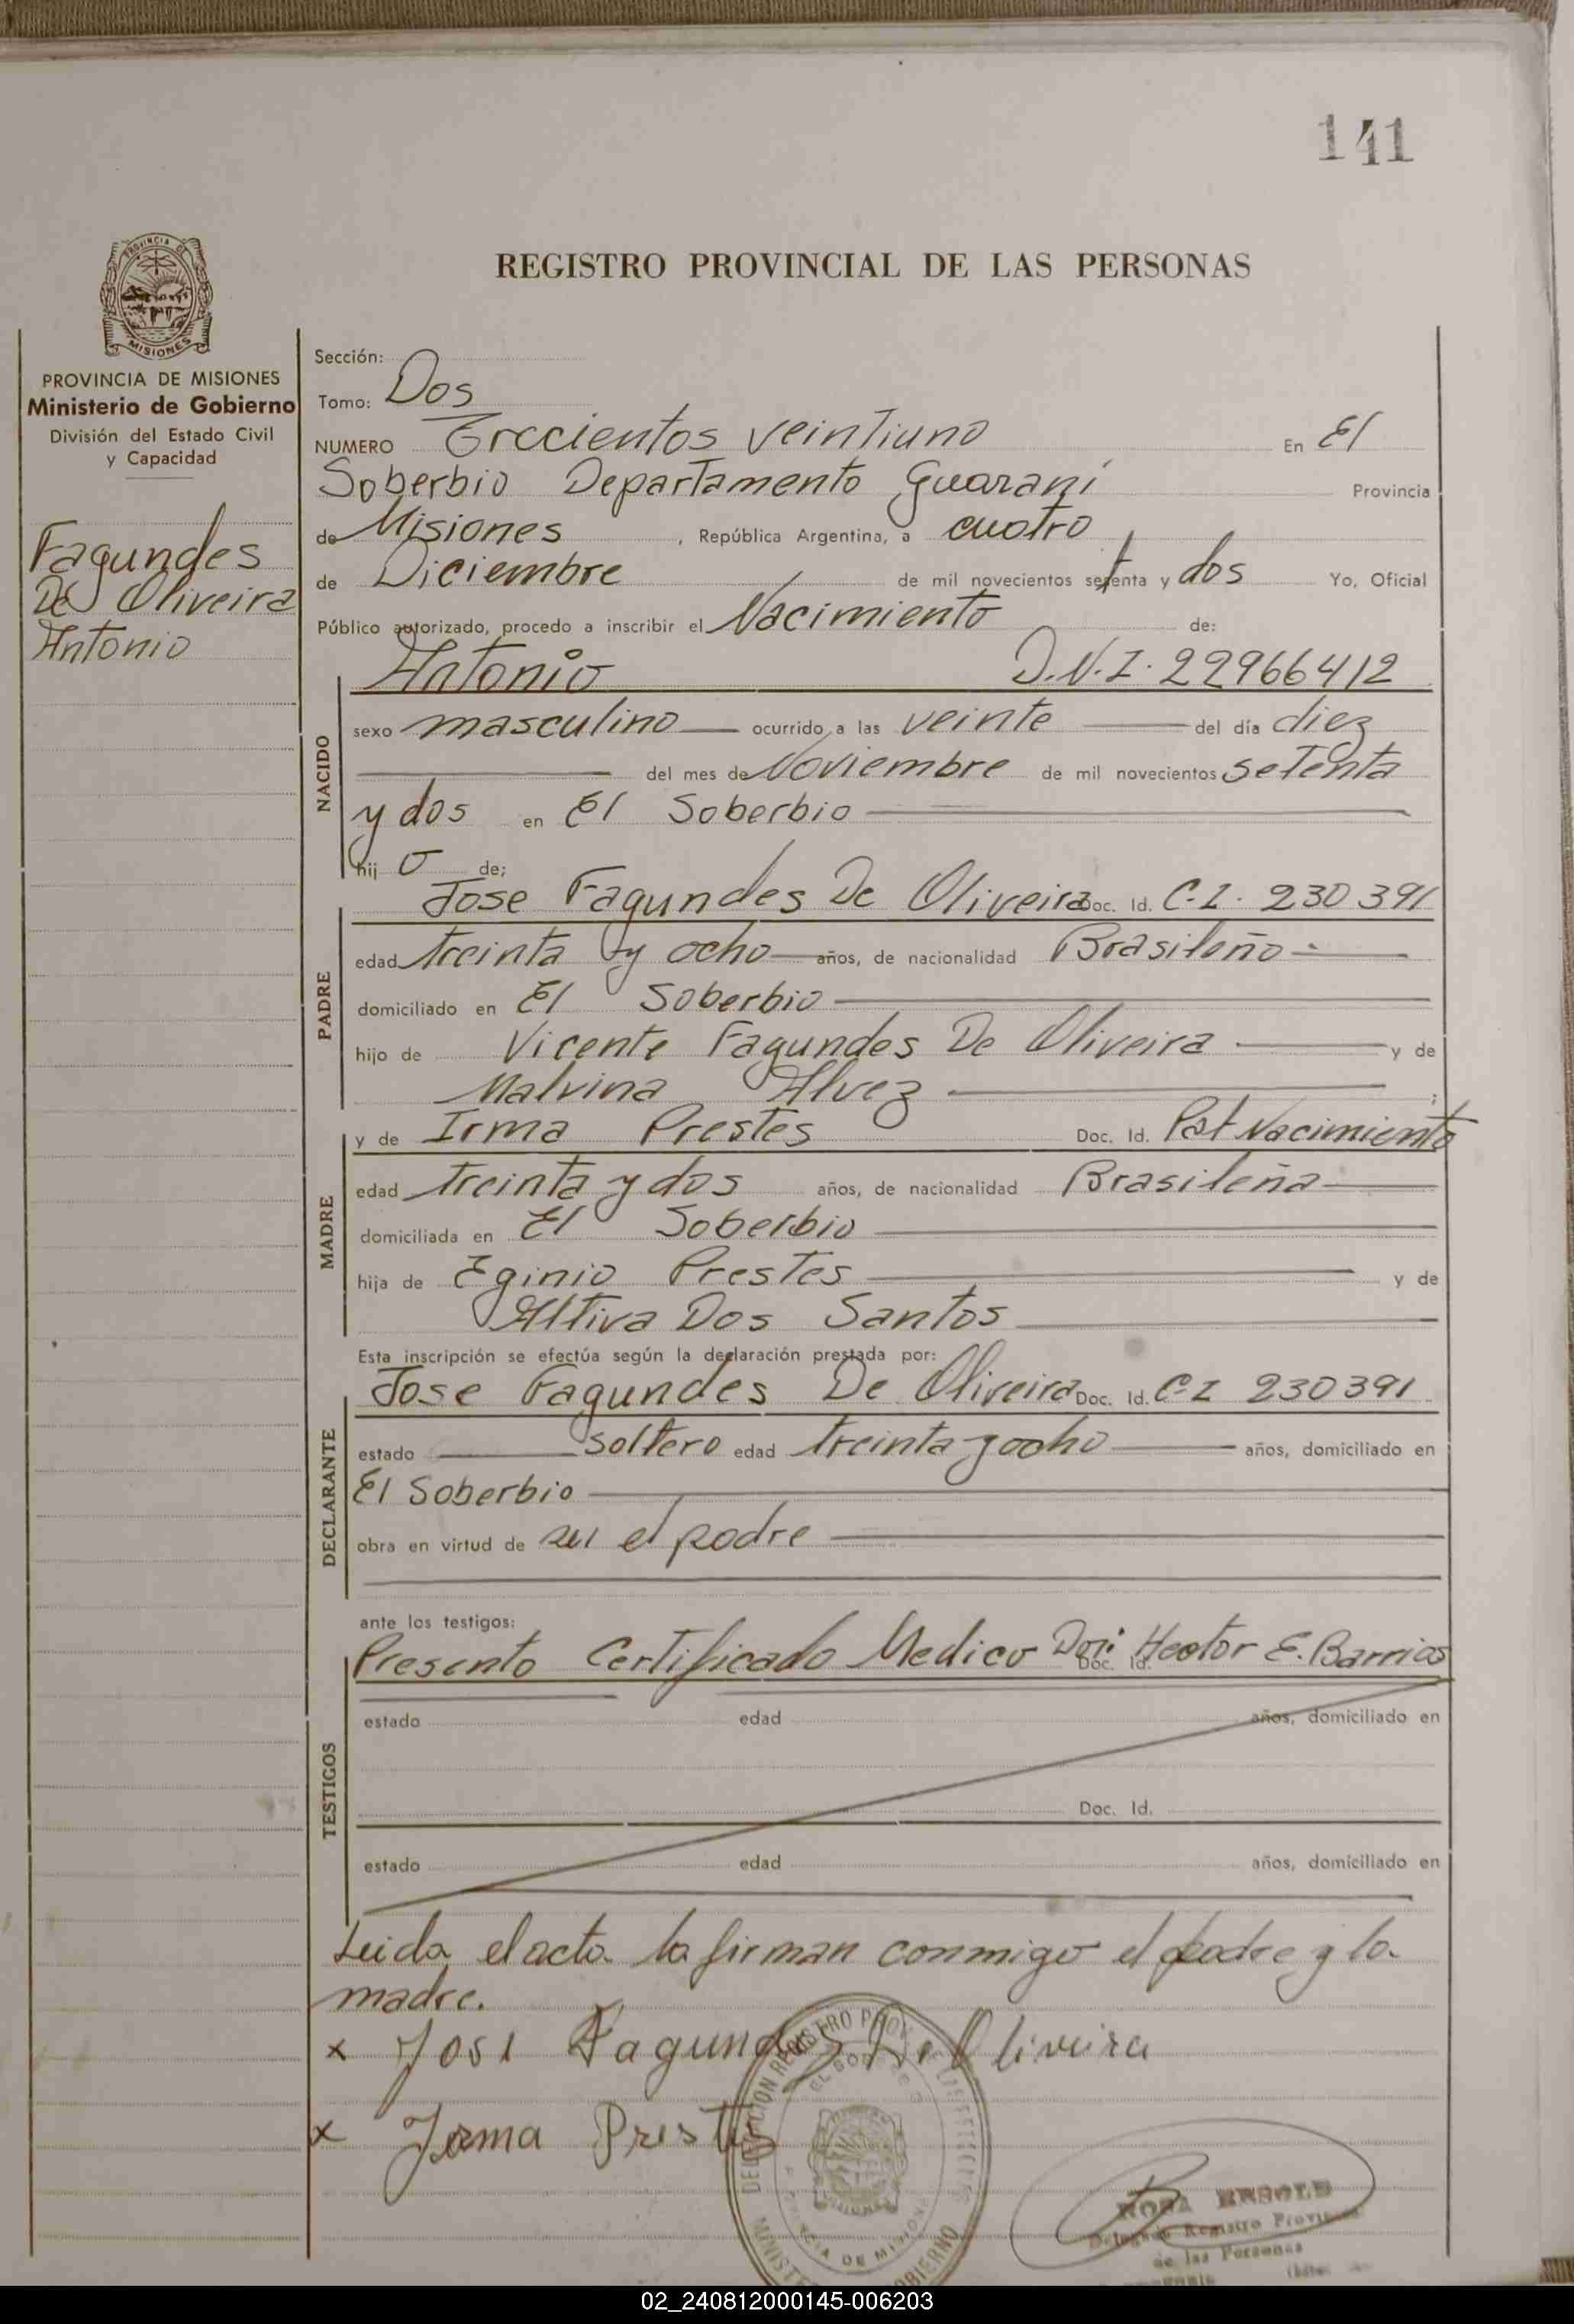 141
PROVINCIA DE
MISIONES
REGISTRO PROVINCIAL DE LAS PERSONAS
PROVINCIA DE MISIONES
Ministerio de Gobierno
División del Estado Civil
y Capacidad
Fagundes
De Oliveira
Antonio
Sección:
Tomo: Dos
NUMERO Trecientos veintiuno En El
Soberbio Departamento Guaraní Provincia
de Misiones, República Argentina, a cuatro
de Diciembre de mil novecientos setenta y dos Yo, Oficial
Público autorizado, procedo a inscribir el Nacimiento de:
Antonio D.N.I. 22966412
NACIDO
sexo masculino ocurrido a las veinte del día diez
del mes de Noviembre de mil novecientos setenta
y dos en El Soberbio
hijo de;
PADRE
Jose Fagundes De Oliveira Doc. Id. C.I. 230391
edad treinta y ocho años, de nacionalidad Brasileño
domiciliado en El Soberbio
hijo de Vicente Fagundes De Oliveira y de
Malvina Alvez ;
MADRE
y de Irma Prestes Doc. Id. Pat Nacimiento
edad treinta y dos años, de nacionalidad Brasileña
domiciliada en El Soberbio
hija de Eginio Prestes y de
Altiva Dos Santos
Esta inscripción se efectúa según la declaración prestada por:
DECLARANTE
Jose Fagundes De Oliveira Doc. Id. C.I 230391
estado soltero edad treinta y ocho años, domiciliado en
El Soberbio
obra en virtud de ser el padre
ante los testigos:
TESTIGOS
Presento Certificado Medico Doc. Id. Hector E. Barrios
estado edad años, domiciliado en
Doc. Id.
estado edad años, domiciliado en
Leida el acta la firman conmigo el padre y la
madre.
x Josi Fagundes De Oliveira
x Irma Prestes
DELEGACION REGISTRO
EL SOBERBIO
PROVINCIA DE MISIONES
MINISTERIO GOBIERNO
ROSA
Registro Provincial
de las Personas
02_240812000145-006203